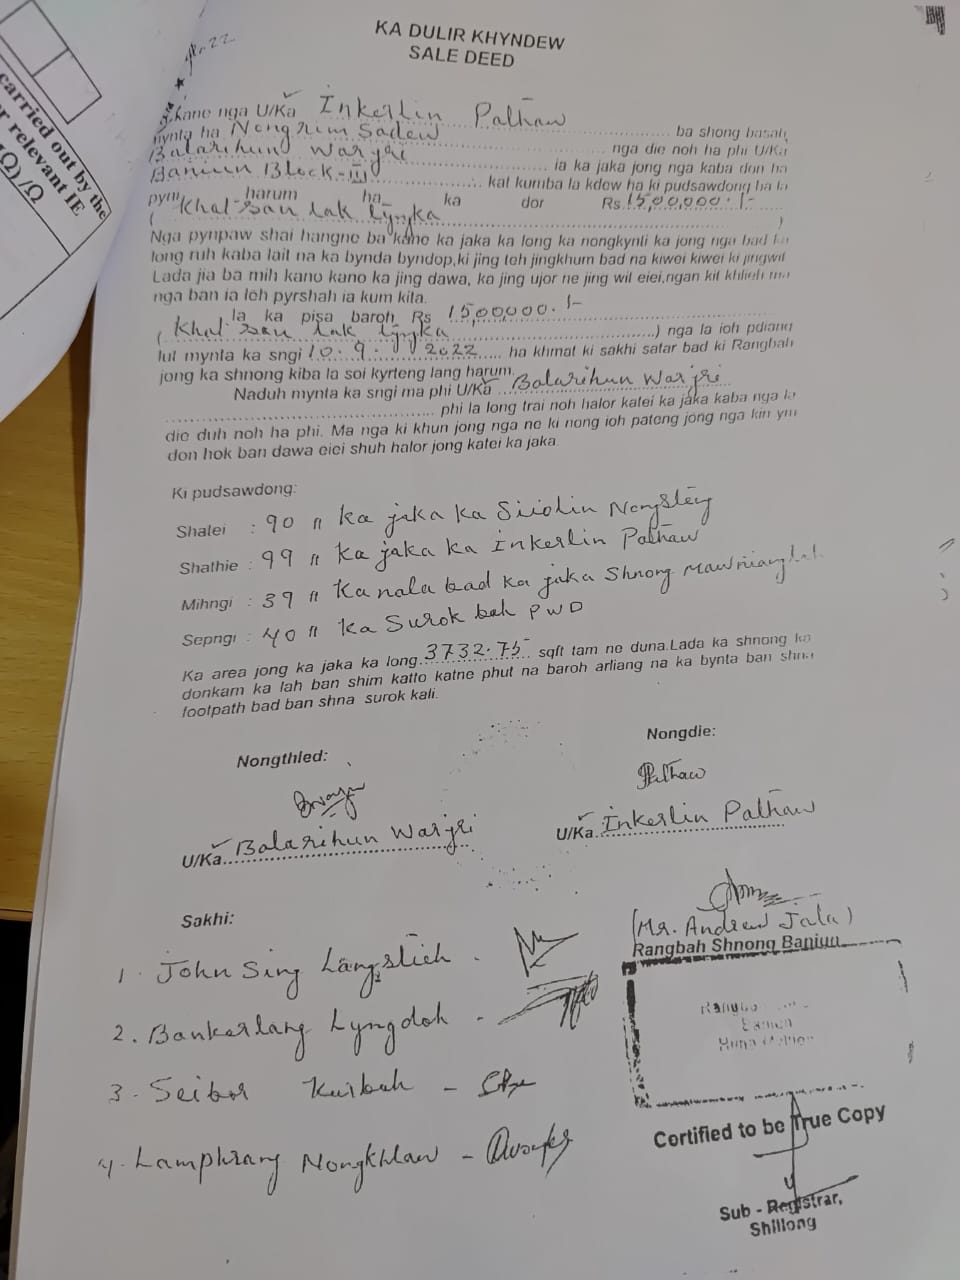 carried out by the
r relevant IE
Ω) /Ω
22
KA DULIR KHYNDEW
SALE DEED
kane nga U/Ka Inkerlin Pathaw ba shong basah
mynta ha Nongrim Sadew nga die noh ha phi U/Ka
Balarihun Warjri ia ka jaka jong nga kaba don ha
Baniun Block-III kat kumba la kdew ha ki pudsawdong ha la
pym harum ha ka dor Rs 15,00,000.|-
( Khat san lak tyngka )
Nga pynpaw shai hangne ba kane ka jaka ka long ka nongkynti ka jong nga bad ka
long ruh kaba lait na ka bynda byndop,ki jing teh jingkhum bad na kiwei kiwei ki jingwit
Lada jia ba mih kano kano ka jing dawa, ka jing ujor ne jing wit eiei,ngan kit khlieh ma
nga ban ia leh pyrshah ia kum kita.
la ka pisa baroh Rs 15,00,000.|-
( Khat san lak tyngka ) nga la ioh pdiang
lut mynta ka sngi 10.9.2022 ha khmat ki sakhi satar bad ki Rangbah
jong ka shnong kiba la soi kyrteng lang harum.
Naduh mynta ka sngi ma phi U/Ka Balarihun Warjri
phi la long trai noh halor katei ka jaka kaba nga la
die duh noh ha phi. Ma nga ki khun jong nga ne ki nong ioh pateng jong nga kin ym
don hok ban dawa eiei shuh halor jong katei ka jaka.
Ki pudsawdong:
Shatei : 90 ft ka jaka ka Siidlin Nongsteng
Shathie : 99 ft ka jaka ka Inkerlin Pathaw
Mihngi : 39 ft Ka nala bad ka jaka Shnong
Sepngi : 40 ft ka Surok bah PWD
Ka area jong ka jaka ka long 3732.75 sqft tam ne duna.Lada ka shnong ka
donkam ka lah ban shim katto katne phut na baroh arliang na ka bynta ban shna
footpath bad ban shna surok kali.
Nongthied:
Nongdie:
Pathaw
U/Ka Balarihun Warjri
U/Ka Inkerlin Pathaw
Sakhi:
(Mr. Andrew Jala)
Rangbah Shnong Baniun
1. John Sing Langstieh -
2. Bankerlang Lyngdoh -
3. Seibor Kurbah -
4. Lamphrang Nongkhlaw -
Certified to be True Copy
Sub - Registrar,
Shillong